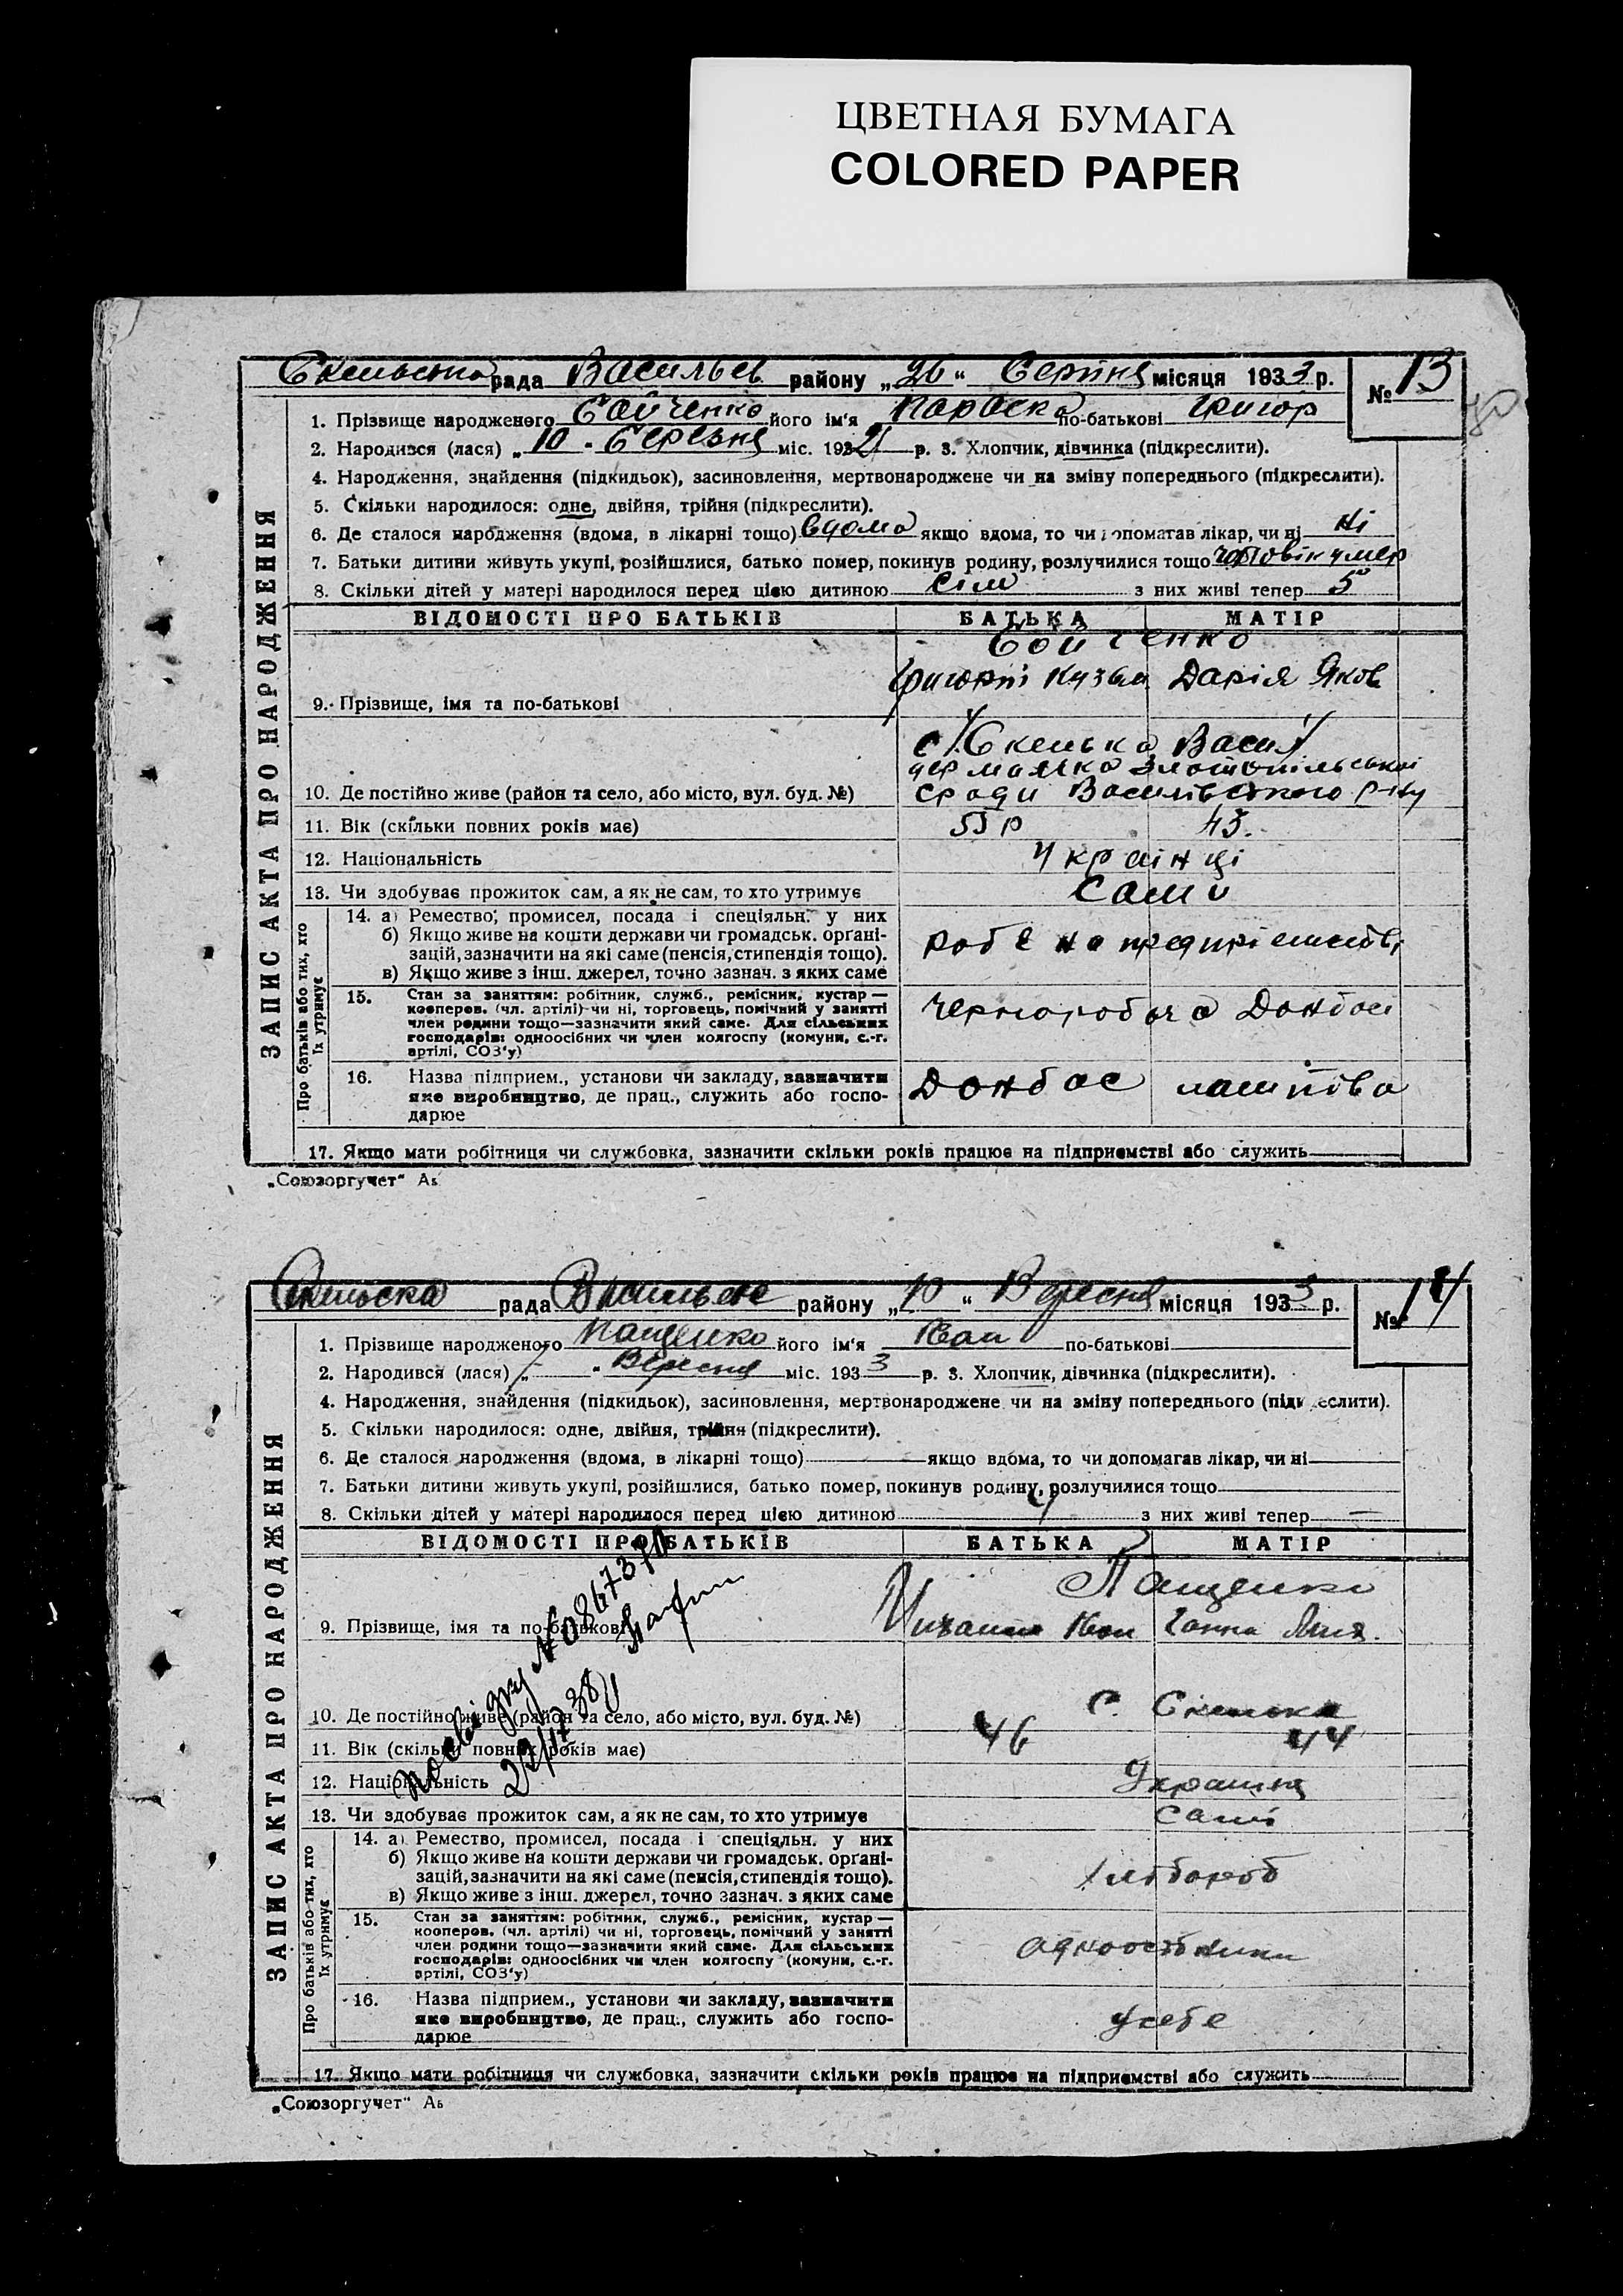 ЦВЕТНАЯ БУМАГА
COLORED PAPER
Скельська рада Васильев району „26“ Серпня місяця 1933 р. № 13
ЗАПИС АКТА ПРО НАРОДЖЕННЯ
1. Прізвище народженого Бойченко його ім'я Параска по-батькові Григор
2. Народився (лася) „10 міс. 193 р. 3. Хлопчик, дівчинка (підкреслити).
4. Народження, знайдення (підкидьок), засиновлення, мертвонароджене чи на зміну попереднього (підкреслити).
5. Скільки народилося: одне, двійня, трійня (підкреслити).
6. Де сталося народження (вдома, в лікарні тощо) вдома якщо вдома, то чи допомагав лікар, чи ні ні
7. Батьки дитини живуть укупі, розійшлися, батько помер, покинув родину, розлучилися тощо чоловік умер
8. Скільки дітей у матері народилося перед цією дитиною сім з них живі тепер 5
ВІДОМОСТІ ПРО БАТЬКІВ БАТЬКА МАТІР
Бойченко
Григорій Кузьм Дарія Яков
9. Прізвище, імя та по-батькові
с. Скелька Васил
10. Де постійно живе (район та село, або місто, вул. буд. №) сради Василівського р-ну
11. Вік (скільки повних років має) 55 р 43.
12. Національність Українці
13. Чи здобуває прожиток сам, а як не сам, то хто утримує сами
Про батьків або тих, хто їх утримує
14. а) Ремество, промисел, посада і спеціяльн. у них
б) Якщо живе на кошти держави чи громадськ. органі-
зацій, зазначити на які саме (пенсія, стипендія тощо).
в) Якщо живе з інш. джерел, точно зазнач. з яких саме
робе на предприемстві
15. Стан за заняттям: робітник, служб., ремісник, кустар —
кооперов. (чл. артілі) чи ні, торговець, помічний у занятті
член родини тощо—зазначити який саме. Для сільських
господарів: одноосібних чи член колгоспу (комуни, с.-г.
артілі, СОЗ'у)
Чернороboча Донбас
16. Назва підприєм., установи чи закладу, зазначити
яке виробництво, де прац., служить або госпо-
дарює
Донбас
17. Якщо мати робітниця чи службовка, зазначити скільки років працює на підприємстві або служить
„Союзоргучет“
Скельска рада району „10“ Вересня місяця 1933 р. № 14
ЗАПИС АКТА ПРО НАРОДЖЕННЯ
1. Прізвище народженого Пащенко його ім'я Іван по-батькові
2. Народився (лася) „7 “ Вересня міс. 1933 р. 3. Хлопчик, дівчинка (підкреслити).
4. Народження, знайдення (підкидьок), засиновлення, мертвонароджене чи на зміну попереднього (підкреслити).
5. Скільки народилося: одне, двійня, трійня (підкреслити).
6. Де сталося народження (вдома, в лікарні тощо) якщо вдома, то чи допомагав лікар, чи ні
7. Батьки дитини живуть укупі, розійшлися, батько помер, покинув родину, розлучилися тощо
8. Скільки дітей у матері народилося перед цією дитиною з них живі тепер —
ВІДОМОСТІ ПРО БАТЬКІВ БАТЬКА МАТІР
Пащенко
9. Прізвище, імя та по-батькові Іван Ганна
10. Де постійно живе (район та село, або місто, вул. буд. №) с. Скелька
11. Вік (скільки повних років має) 46 44
12. Національність
13. Чи здобуває прожиток сам, а як не сам, то хто утримує самі
Про батьків або тих, хто їх утримує
14. а) Ремество, промисел, посада і спеціяльн. у них
б) Якщо живе на кошти держави чи громадськ. органі-
зацій, зазначити на які саме (пенсія, стипендія тощо).
в) Якщо живе з інш. джерел, точно зазнач. з яких саме
хлібороб
15. Стан за заняттям: робітник, служб., ремісник, кустар —
кооперов. (чл. артілі) чи ні, торговець, помічний у занятті
член родини тощо—зазначити який саме. Для сільських
господарів: одноосібних чи член колгоспу (комуни, с.-г.
артілі, СОЗ'у)
одноосібники
16. Назва підприєм., установи чи закладу, зазначити
яке виробництво, де прац., служить або госпо-
дарює
у себе
17. Якщо мати робітниця чи службовка, зазначити скільки років працює на підприємстві або служить
„Союзоргучет“